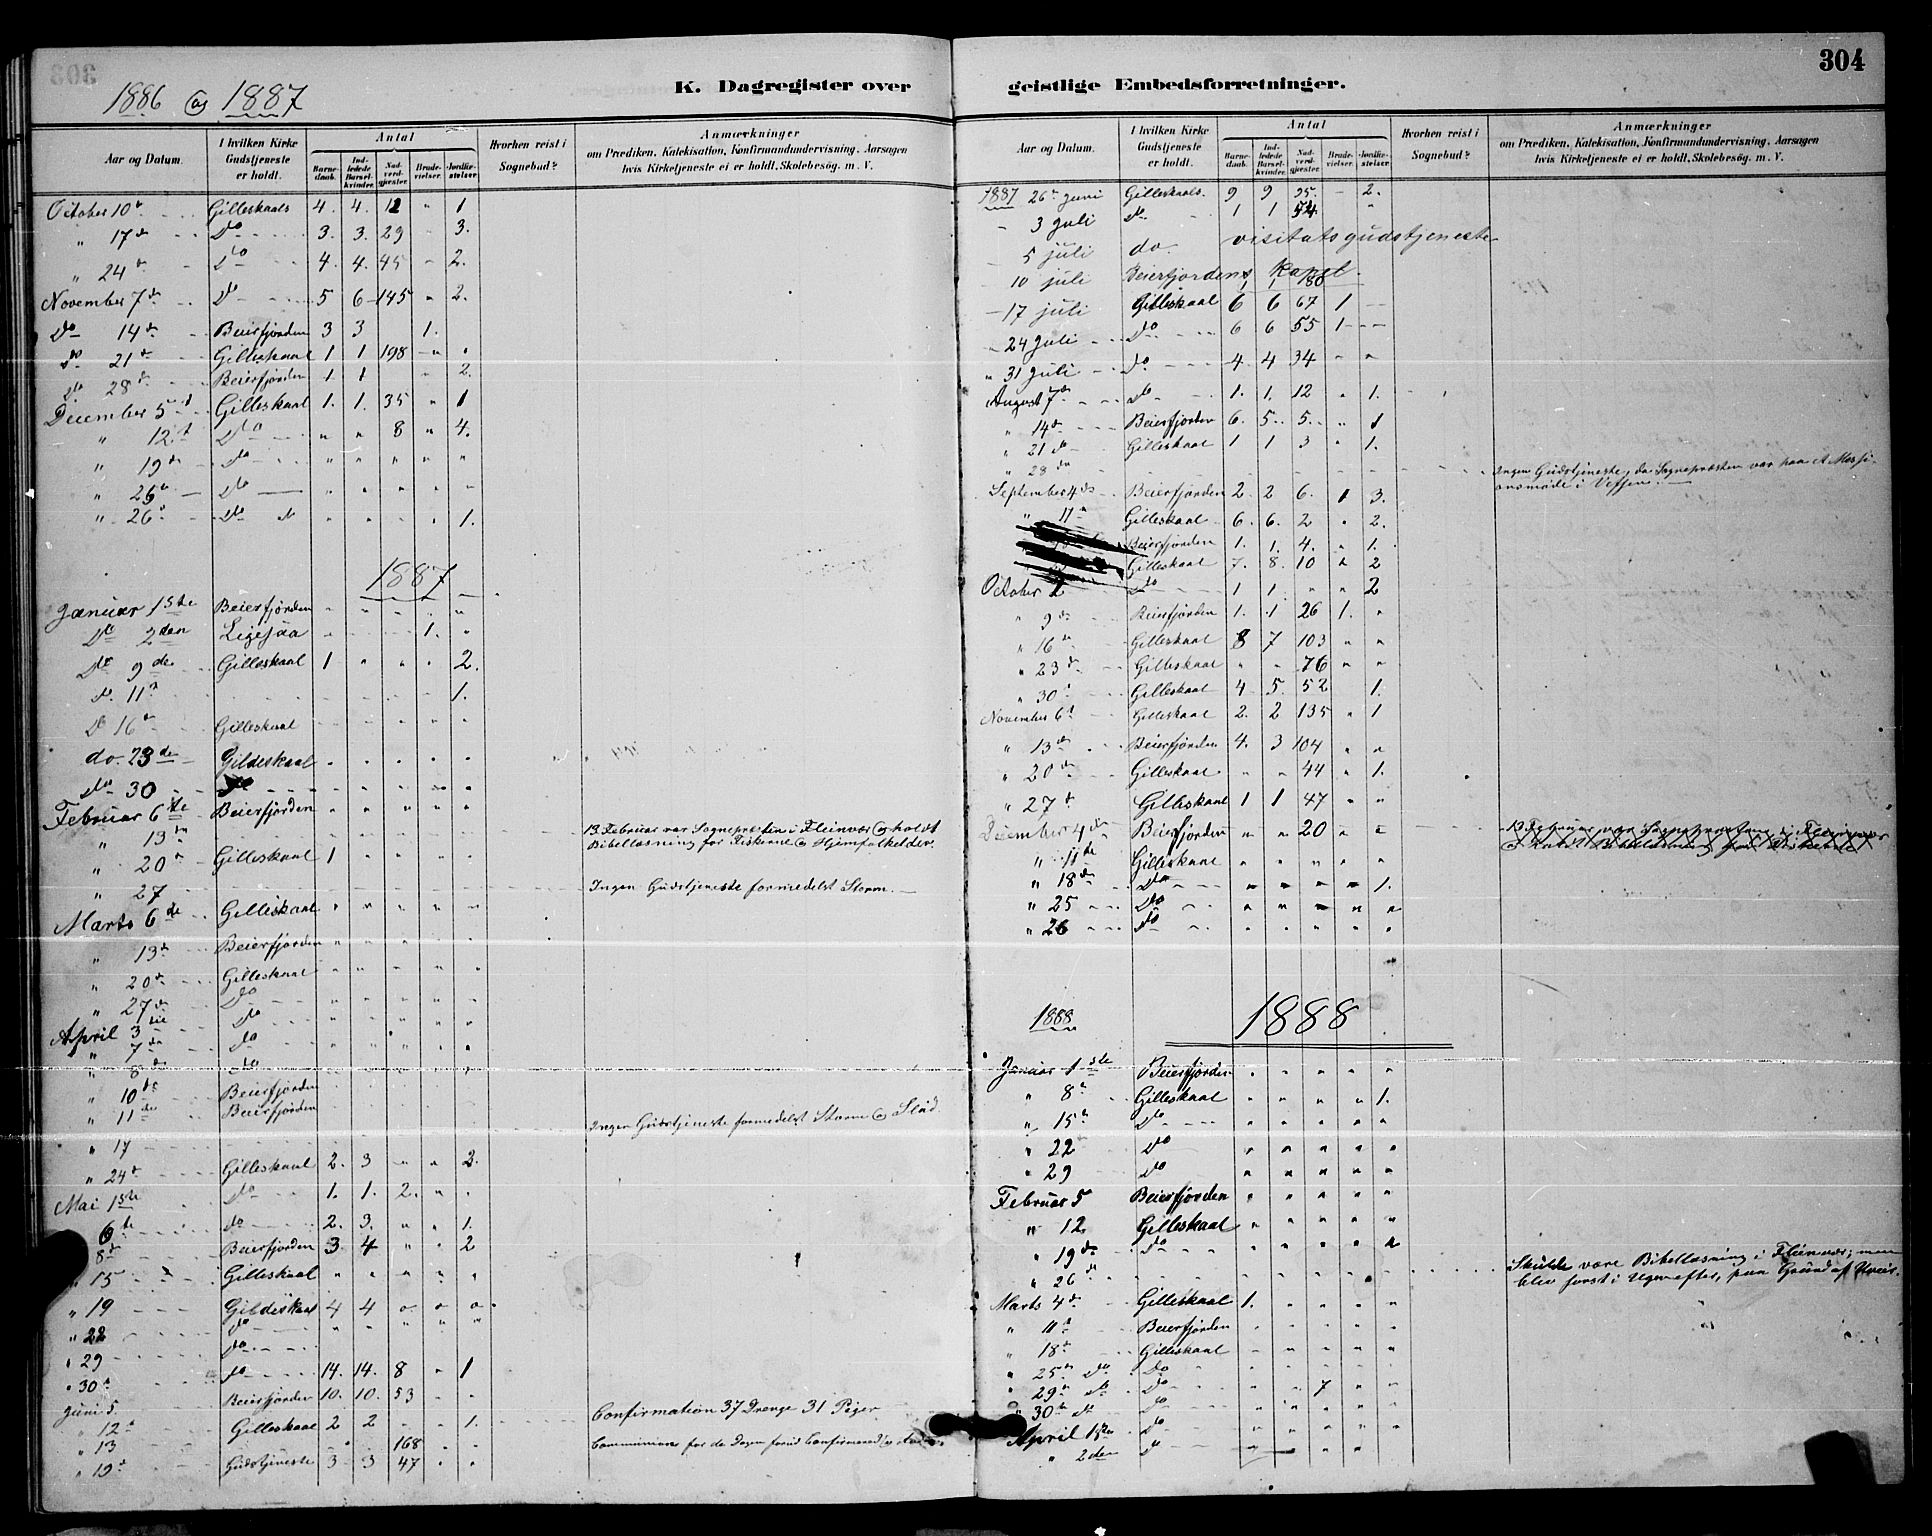 304
1886 og 1887
K. Dagregister over
geistlige Embedsforretninger.
Aar og Datum.
I hvilken Kirke Gudstjeneste er holdt.
Antal
Barnedaab.
Indledede Barselkvinder.
Nadverdgjester
Brudevielser.
Jordfæstelser
Hvorhen reist i Sognebud?
Anmærkninger
om Prædiken, Katekisation, Konfirmandundervisning, Aarsagen
hvis Kirketjeneste ei er holdt, Skolebesög. m. V.
October 10de Gilleskaals 4. 4. 12 " 1
" 17de Do 3. 3. 29 3.
" 24de Do 4. 4. 45 2.
November 7de Do 5 6 145 " 2.
Do 14de Beierfjorden 3 3 1.
Do 21de Gilleskaal 1 1 198 " "
Do 28de Beierfjorden 1 1 " 2.
December 5te Gilleskaal 1. 1. 35 " 1
" 12te Do " " 8 " 4.
" 19de Do " " " " "
" 25de Do " " " " "
" 26de Do " " " " 1.
1887
Januar 1ste Beierfjorden " " " " "
Do 2den 1. "
Do 9de Gilleskaal 1 " " " 2.
Do 11te 1.
Do 16de Gilleskaal
do. 23de Gildeskaal " " " " "
do 30
Februar 6te Beierfjorden " " " " "
" 13de 13 Februar var Sognepræsten i Fleinvær og holdt
Bibellæsning for Fiskerne og Hjemfolkelder.
" 20de Gilleskaal 1 " " " "
" 27 Ingen Gudstjeneste formedelst Storm.
Marts 6te Gilleskaal " " " " "
" 13de Beierfjorden " " " " "
" 20de Gilleskaal " " " " "
" 27de Do " " " " "
April 3die Do " " " " "
" 7de Do " " " " "
" 8de do
" 10de Beierfjorden
" 11te Beierfjorden
" 17 Ingen Gudstjeneste formedelst Storm og Slud.
" 24de Gilleskaal 2. 3 " " 2.
Mai 1ste Do 1. 1. 2. " "
6te do 2. 3. " " 1.
8de Beierfjorden 3. 4 " " 2
" 15 Gilleskaal " " " " "
" 19 Gildeskaal 4 4 o o o
" 22 do " " " " "
" 29 do
" 30te do 14. 14. 8 " 1
Juni 5. Beierfjorden 10. 10. 53 " "
" 12te Gilleskaal 2 2 " 1. Confirmation 37 Drenge 31 Piger
" 13 168 " " Communion for de Dagen forud Confirmered
" 19de Gudstjeneste 3 3 47 " "
1887 26de Juni Gilleskaals. 9 9 25. 2.
3 Juli Do 1 1 54 "
5 juli do. visitatsgudstjeneste
10 juli Beierfjordens Kapel. 1 1 180
17 juli Gilleskaal 6 6 67 1
24 Juli Do 6 6 55 1
" 31 Juli Do 4. 4 34 " "
August 7de Do 1. 1. 12 " 1.
" 14de Beierfjorden 6. 5. 5. " 1
" 21de Gilleskaal 1 1 3 " 1.
" 28de Ingen Gudstjeneste, da Sognepræsten var paa et Missi-
onsmöde i Vefsen.
September 4de Beierfjorden 2. 2 6. 1 3.
" 11te Gilleskaal 6. 6. 2 " 2.
Beierfjorden 1. 1. 4. " 1.
Gilleskaal 7. 8. 10 " 2
October 2 Do 1 1. " " 2
" 9de Beierfjorden 1. 1 26 1. "
" 16de Gilleskaal 8 7 103 " "
" 23de Gilleskaal " " 76 " "
" 30te Gilleskaal 4 5. 52 1.
November 6te Gilleskaal 2. 2 135 " 1
" 13de Beierfjorden 4. 3 104 " "
" 20de Gilleskaal " " 44 " 1.
" 27de Gilleskaal 1 1 47 " "
December 4de Beierfjorden " " 20 " " 13 Februar var Sognepræsten i Fleinvær
og holdt Bibellæsning for Fiskerne
" 11te Gilleskaal " " " " "
" 18de Do " " " " 1.
" 25 Do " " " " "
" 26 do " " " " "
1888 1888
Januar 1ste Beierfjorden " " " " "
" 8de Gilleskaal " " " " 1.
" 15de Do " " " " "
" 22 Do " " " " "
" 29 Do " " " " "
Februar 5 Beierfjorden " " " " "
" 12 Gilleskaal " " " " "
" 19de Do " " " " "
" 26de Skulde være Bibellæsning i Fleinvær; men
blev først i Ugen efter, paa Grund af Uveir.
Marts 4de Gilleskaal 1. " " " "
" 11te Beierfjorden " " " " "
" 18de Gilleskaal " " " " "
" 25de Do " " " " "
" 29de Do 7 " "
" 30te Do " " " " "
April 1ste Do " " " " "
" 2den Do " "